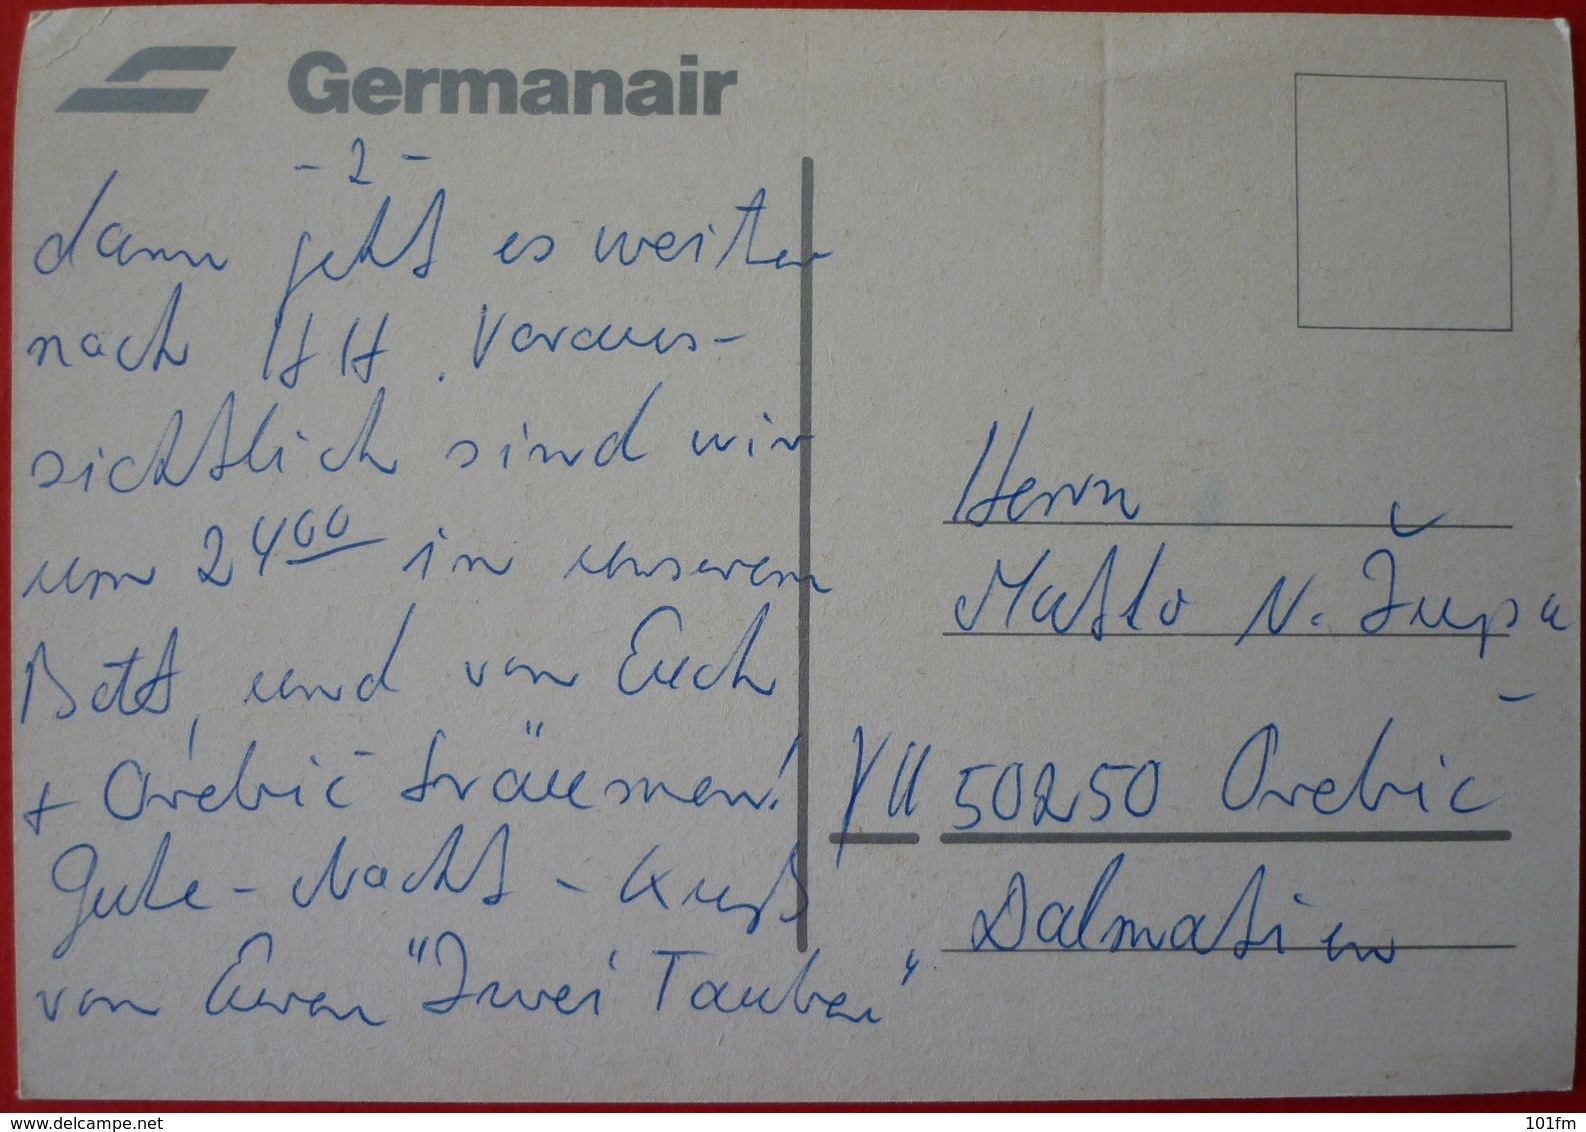 Germanair
- 2 -
dann geht es weiter
nach HH. Voraus-
sichtlich sind wir
um 24 00 in unserem
Bett, und von Euch
+ Orebič träumen!
Gute - Nacht - Kuß
von Euren "Zwei Tauben"
Herrn
Matko N. Župa
YU 50250 Orebić
Dalmatien
www.delcampe.net
101fm